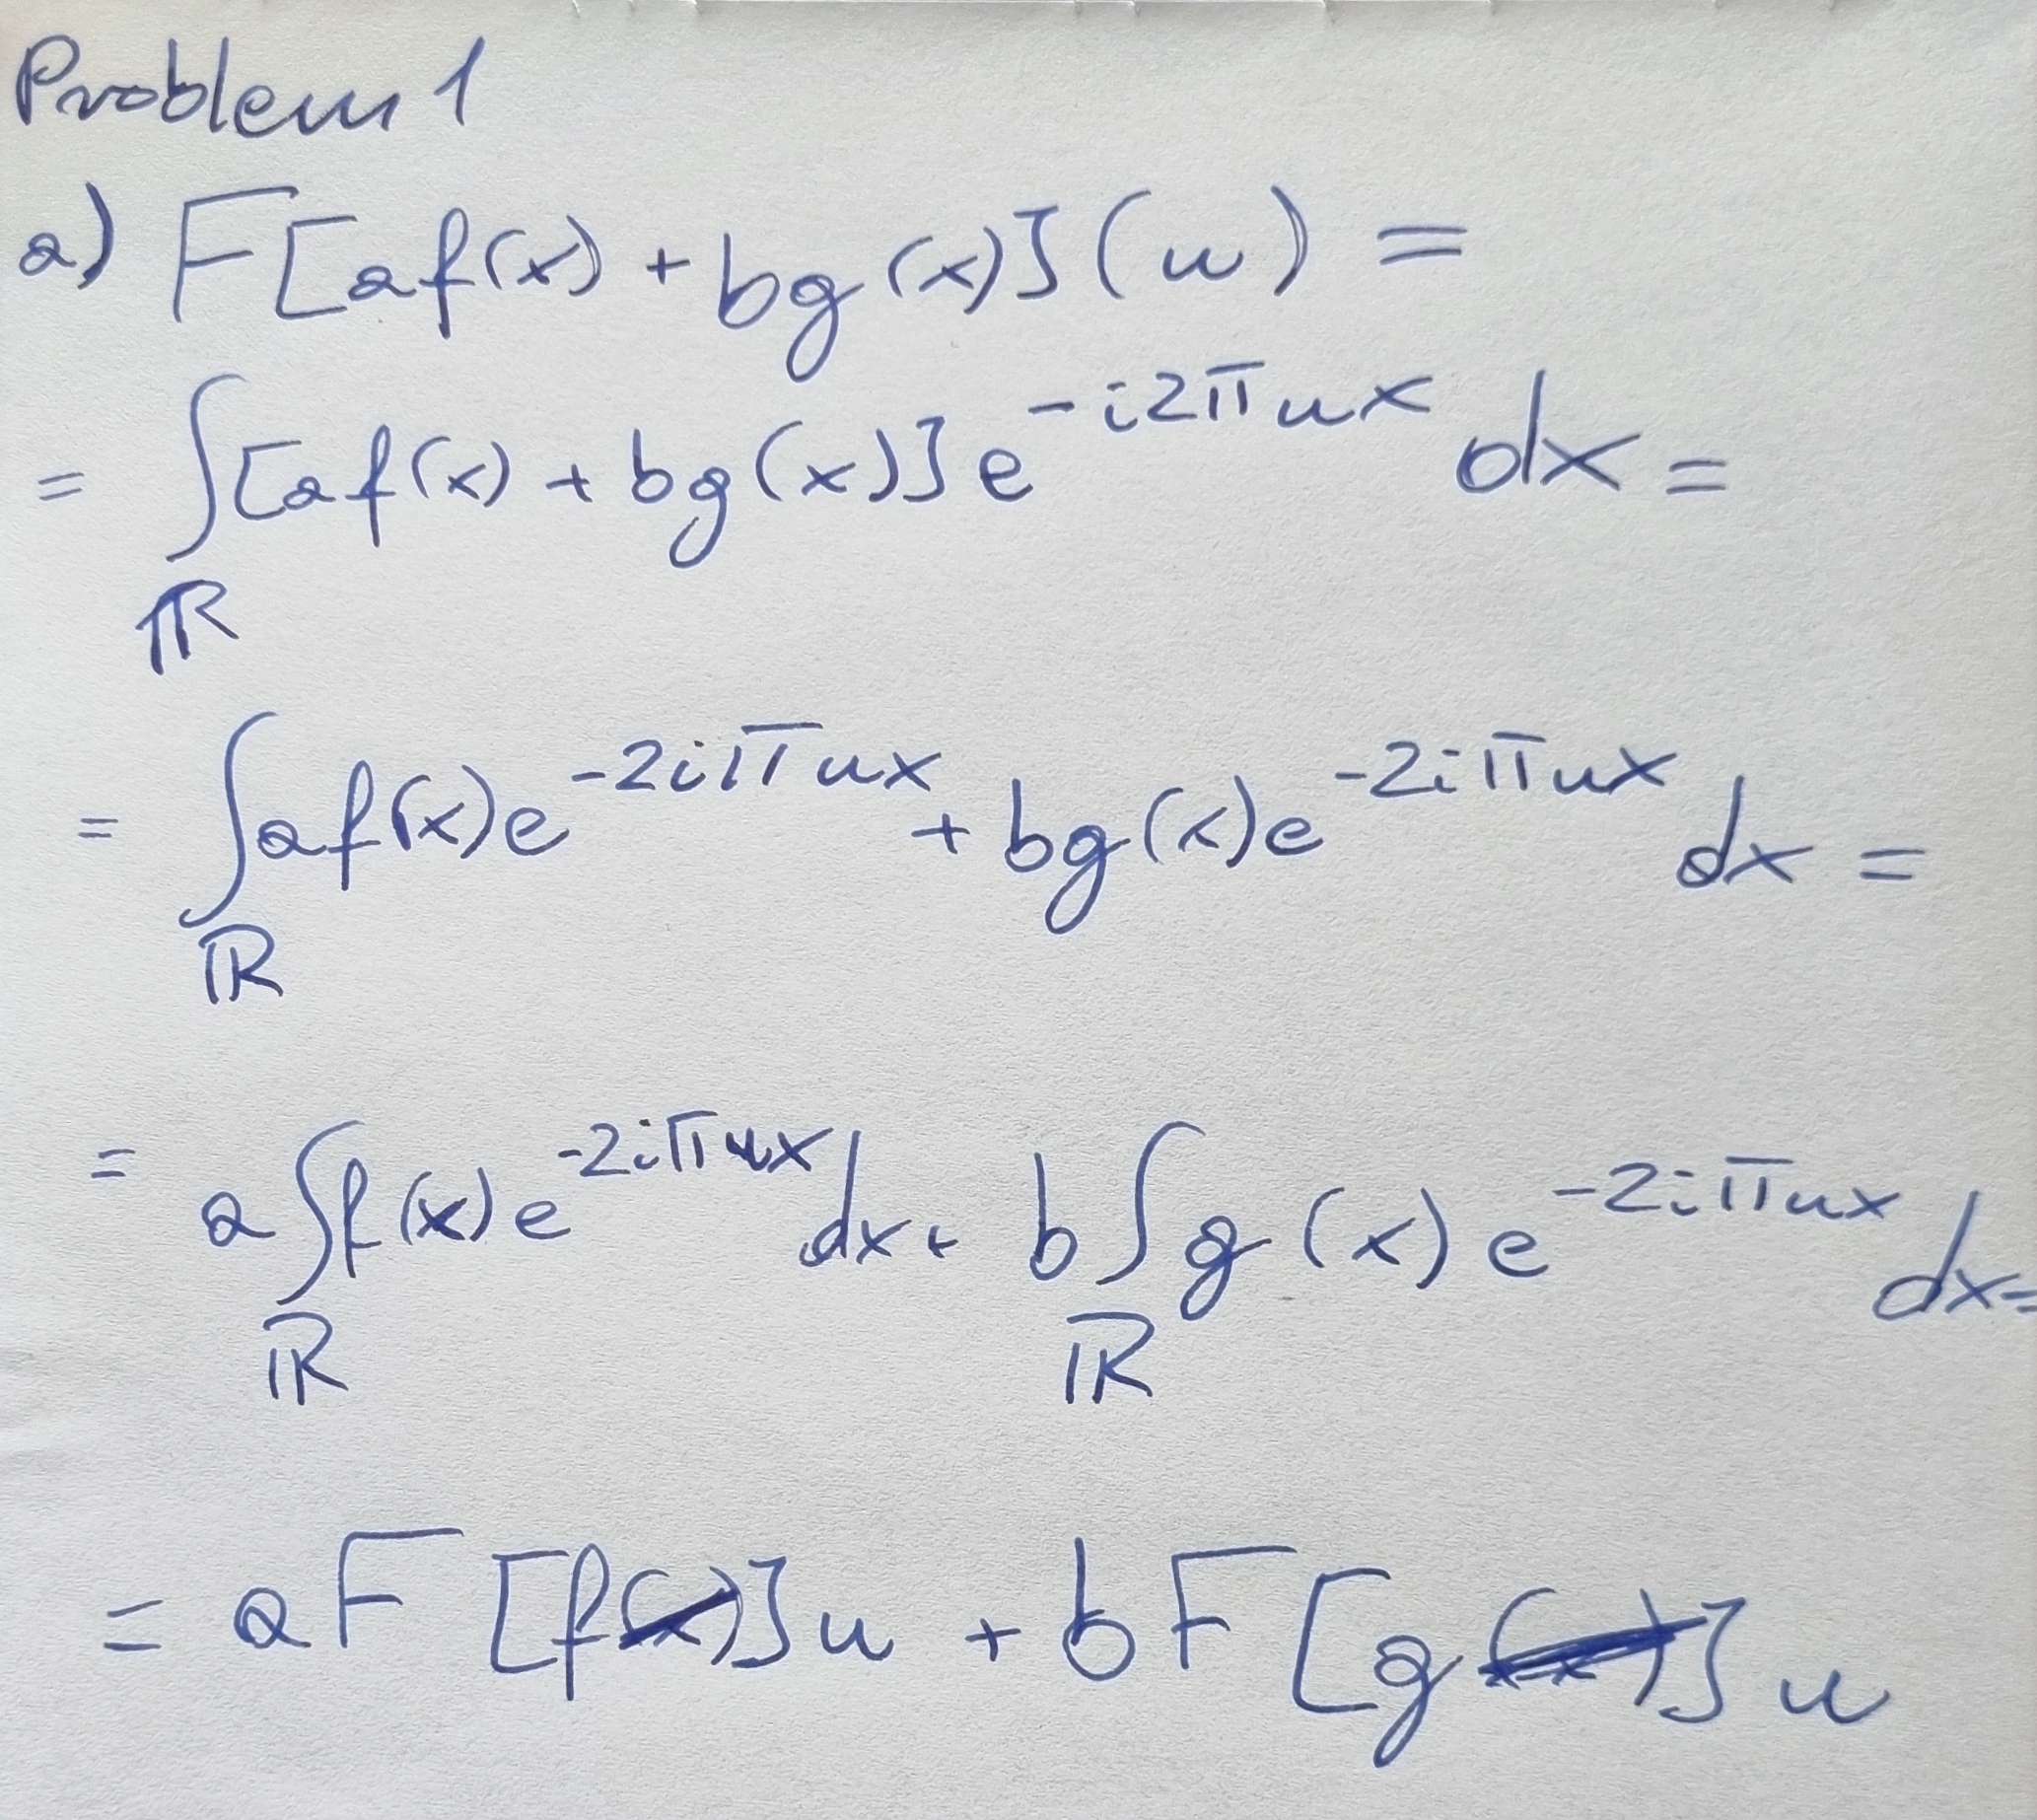 Problem 1
a) F[af(x) + bg(x)](u) =
= ∫ℝ [af(x) + bg(x)] e^{-i2πux} dx =
= ∫ℝ af(x)e^{-2iπux} + bg(x)e^{-2iπux} dx =
= a∫ℝ f(x)e^{-2iπux} dx + b∫ℝ g(x)e^{-2iπux} dx =
= aF[f]u + bF[g]u